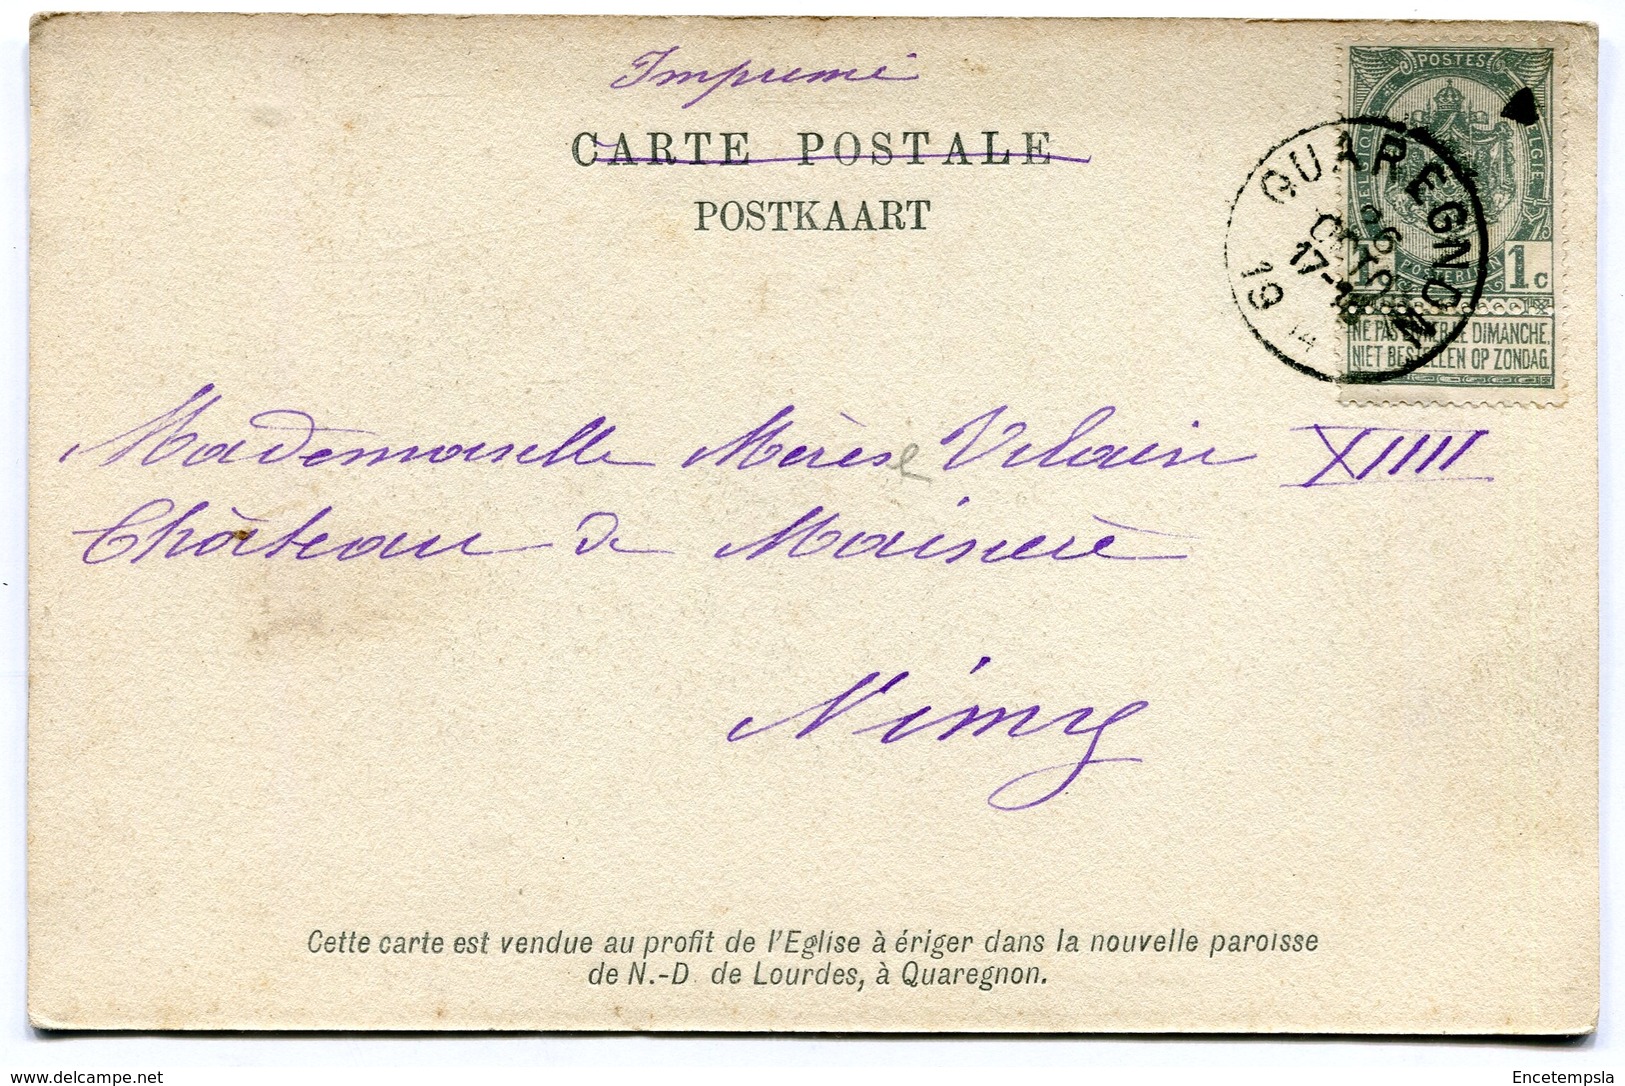 Imprimé
CARTE POSTALE
POSTKAART
POSTES
1 1c
POSTERIJEN
NE PAS LIVRER LE DIMANCHE.
NIET BESTELLEN OP ZONDAG.
QUAREGNON
OCTO
17-18
19
Mademoiselle Vilain XIIII
Château de Maisière
Nimy
Cette carte est vendue au profit de l'Eglise à ériger dans la nouvelle paroisse
de N.-D. de Lourdes, à Quaregnon.
www.delcampe.net
Encetempsla